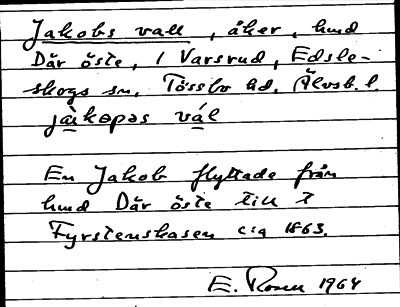 Jakobs vall, åker, hmd
Där öste, 1 Varsrud, Edsle-
skogs sn. Tössbo hd. Älvsb. l.
jàkəpəs vál
En Jakob flyttade från
hmd Där öste till t
Fyrstenskasen cia 1863.
E. Rosen 1964